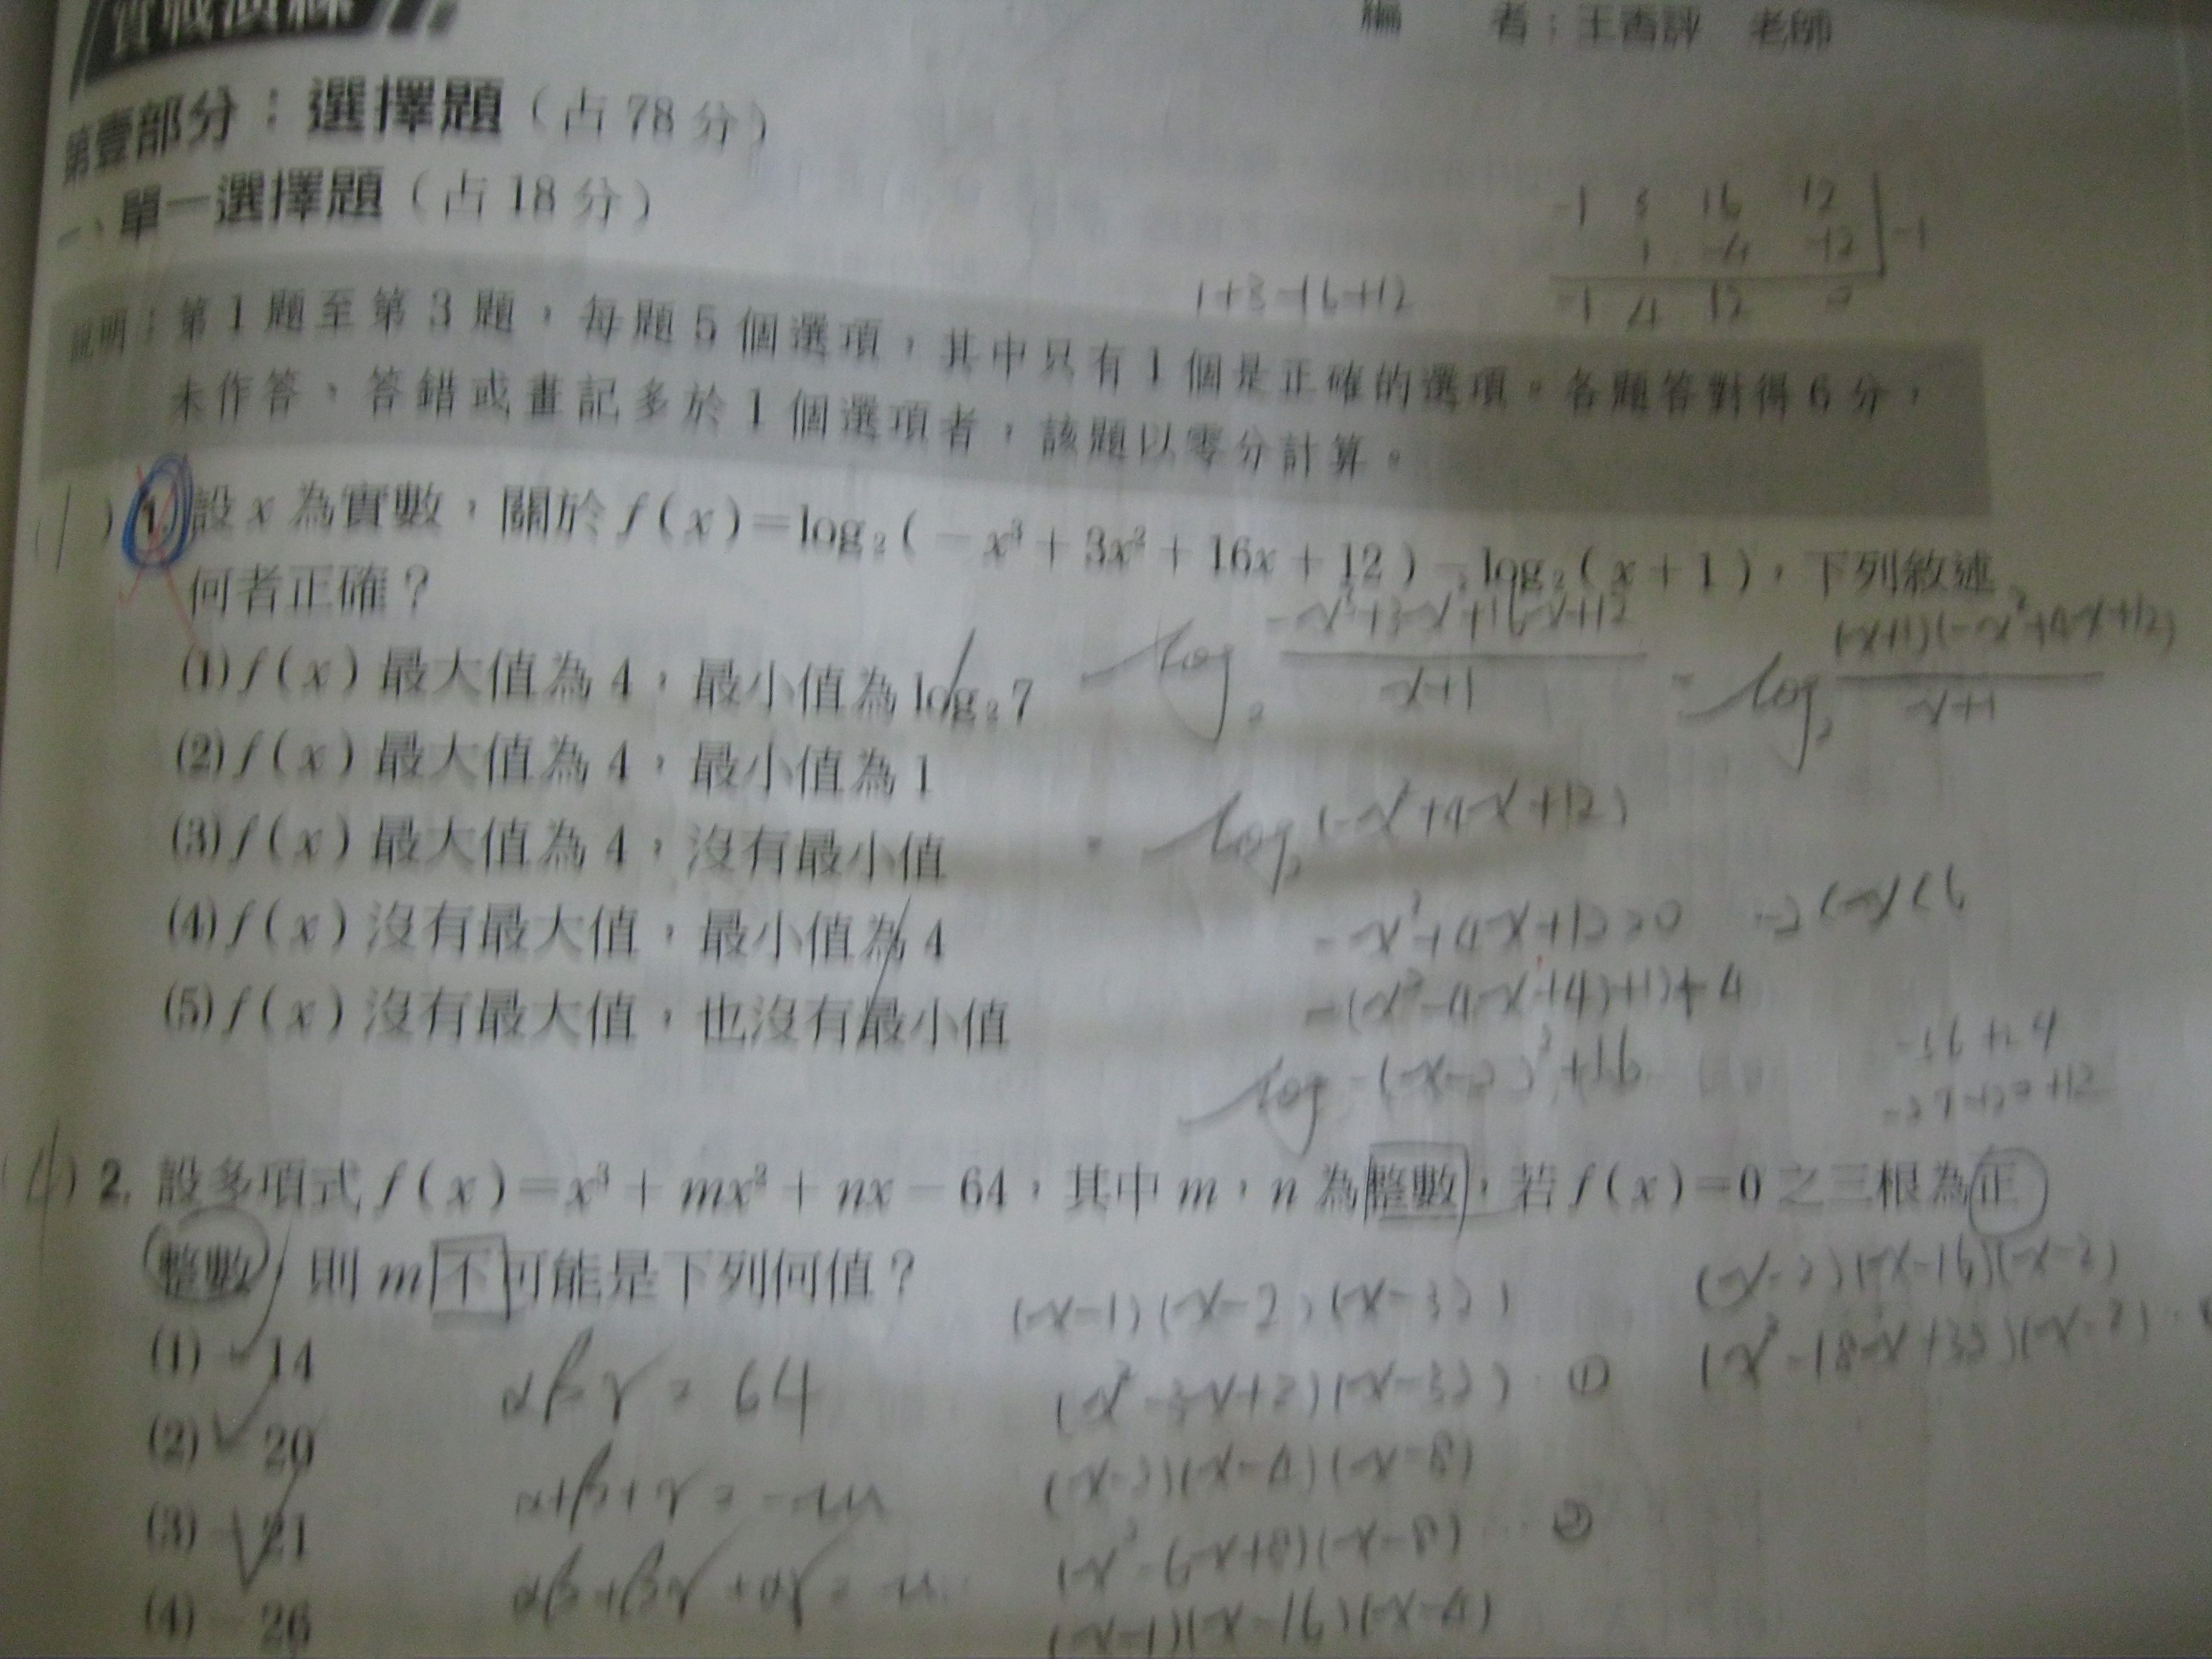 實戰演練
編 者：王香評 老師
第壹部分：選擇題（占 78 分）
一、單一選擇題（占 18 分）
-1 3 16 12 | -1
1 -4 -12
-1 4 12 0
1+3-16+12
說明：第 1 題至第 3 題，每題 5 個選項，其中只有 1 個是正確的選項。各題答對得 6 分，
未作答、答錯或畫記多於 1 個選項者，該題以零分計算。
1. 設 x 為實數，關於 f(x)=log₂(-x³+3x²+16x+12)-log₂(x+1)，下列敘述
何者正確？
(1) f(x) 最大值為 4，最小值為 log₂7
(2) f(x) 最大值為 4，最小值為 1
(3) f(x) 最大值為 4，沒有最小值
(4) f(x) 沒有最大值，最小值為 4
(5) f(x) 沒有最大值，也沒有最小值
= log₂ (-x³+3x²+16x+12)/(x+1) = log₂ (x+1)(-x²+4x+12)/(x+1)
= log₂(-x²+4x+12)
-x²+4x+12>0 -2<x<6
log -(x-2)²+16
(4) 2. 設多項式 f(x)=x³+mx²+nx-64，其中 m，n 為整數，若 f(x)=0 之三根為正
整數，則 m 不可能是下列何值？
(1) -14
(2) -20
(3) -21
(4) -26
αβγ=64
α+β+γ=-m
(x-1)(x-2)(x-32)
(x²-3x+2)(x-32) ①
(x-2)(x-4)(x-8)
(x²-6x+8)(x-8) ②
(x-1)(x-16)(x-4)
(x-2)(x-16)(x-2)
(x²-18x+32)(x-2)